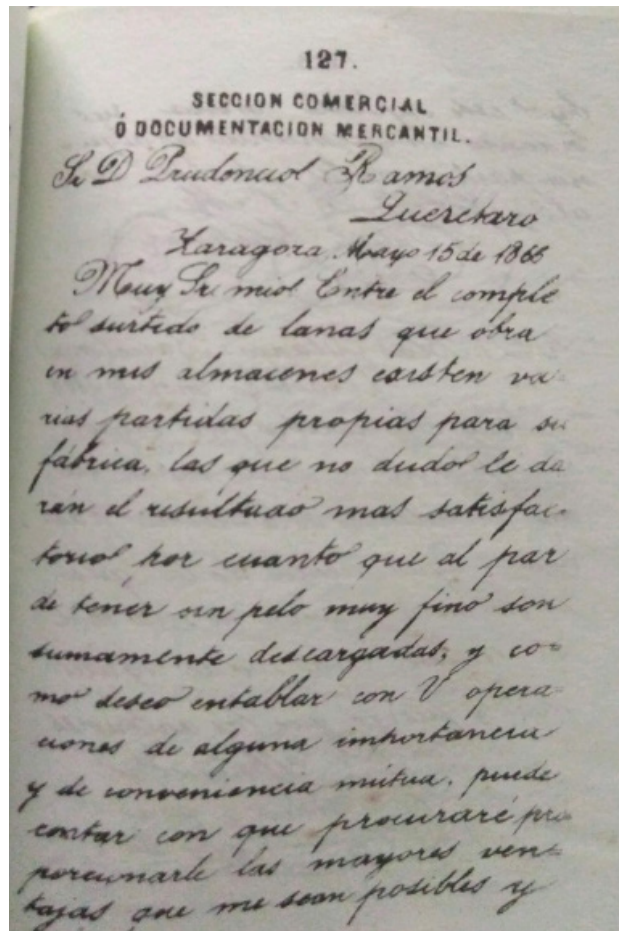 127.
SECCION COMERCIAL
Ó DOCUMENTACION MERCANTIL.
Sr D Prudencio Ramos
Queretaro
Zaragoza, Mayo 15 de 1866
Muy Sr. mio: Entre el comple
to surtido de lanas que obra
en mis almacenes existen va
rias partidas propias para su
fábrica, las que no dudo le da
rán el resultado mas satisfac-
torio por cuanto que al par
de tener un pelo muy fino son
sumamente descargadas, y co-
mo deseo entablar con V opera-
ciones de alguna importancia
y de conveniencia mútua, puede
contar con que procuraré pro
porcionarle las mayores ven-
tajas que me sean posibles y